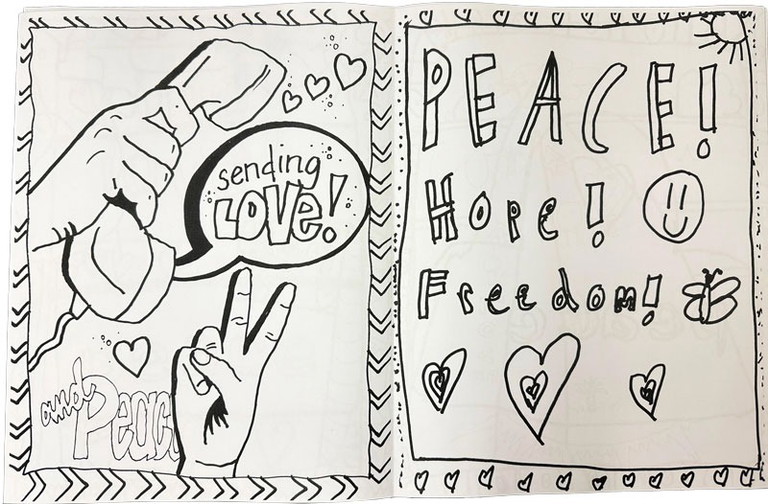 sending
LOVE!
and
Peace
PEACE!
Hope!
Freedom!